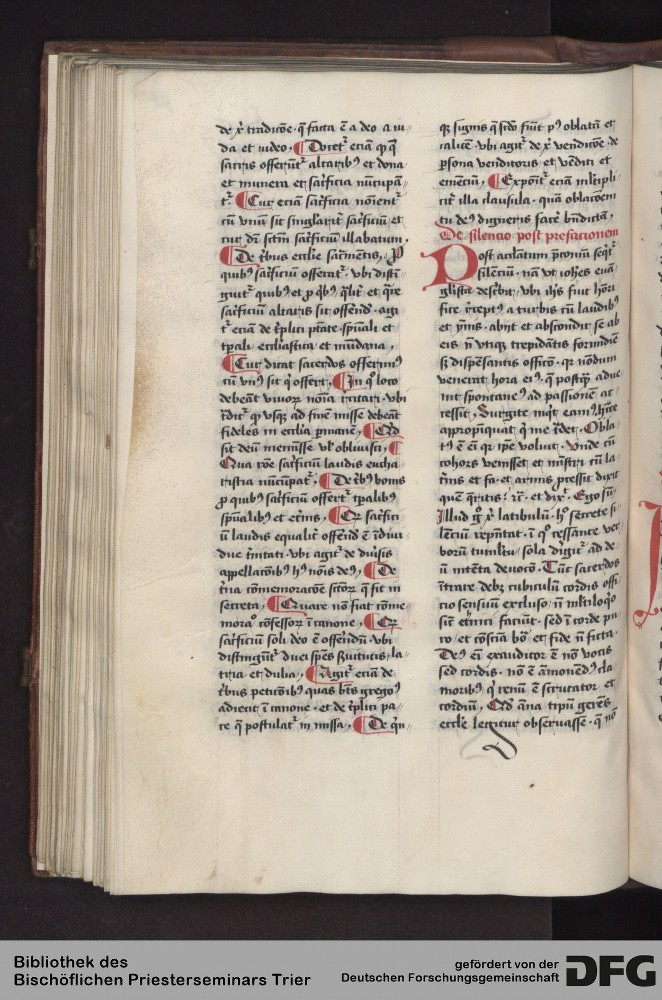 de xp̄i tradicōe · q̄ facta ē a deo a iu
da et iudeo · Docet᷑ eciā qͥ qͥ
sacris offerūt᷑ altaribꝫ et dona
et munera et sac̄ficia nūcupā
t᷑ · Cur eciā sac̄ficia noīent᷑
cū vnū sit singlarit᷑ sac̄ficiū et
cur d̄r sc̄tm̄ sac̄ficiū illibatum ·
De t̄bus ecclīe sac̄mētis, Pro
quibꝫ sac̄ficiū offerat᷑ · vbi disti
guit᷑ quibꝫ et ꝓ qͥbꝫ qͣlit᷑ et qͣre
sac̄ficiū altaris sit offerēdū · agi
t᷑ eciā de t̄plici pͣtate · spūali et
tp̄ali ecclīastica et mūdana ,
Cur dicat sacerdos offerimꝰ
cū vnꝰ sit qͥ offert, In qͦ loco
debeāt viuorū noīa recitari · vbi
r̄dit᷑ qͥ vsqꝫ ad finē misse debeāt
fideles in ecclīa ꝑmanē, Qd
sit deū meminisse vl' obliuisci,
Qua rōe sac̄ficiū laudis eucha
ristia nūcupat᷑, De t̄bꝫ bonis
ꝓ quibꝫ sac̄ficiū offert᷑ tp̄alibꝫ
spūalibꝫ et et̄nis, Qr̄ sac̄fici
ū laudis equalit᷑ offerēd ē īdiui
due t̄nitati · vbi agit᷑ de diu̾sis
appellacōībꝫ hꝰ noīs deꝰ, De
t̄na cōmemoracōe sc̄torū q̄ fit in
secreta, Quare nō fiat cōme
moracͦ cōfessorū ī canone, Qr̄
sac̄ficiū soli deo ē offerēdū · vbi
distingūt᷑ due sp̄es s̄uitutis, la
tria et dulia, Agit᷑ eciā de
t̄bus peticōībꝫ quas bt̄s gregoꝰ
adiecit ī canone · et de t̄plici pa
ce q̄ postulat᷑ in missa, De qͥn
qꝫ signis q̄ sc̄do fiūt pͥꝰ oblatā et
calicē · vbi agit᷑ de xp̄i vendicōe · de
ꝑsona venditoris et vēditi et
emēciū, Exponit᷑ eciā ml̄tipli
cit᷑ illa clausula · quā oblacōem
tu deꝰ digneris fac̄e bn̄dictā,
De silencio post prefacionem
Post acclatum p̄coniū seqͥt᷑
silēciū · nā vt ioh̄es euā
glista desc̄bit, vbi ih̄s fuit hōri
fice rceptꝰ a turbis cū laudibꝫ
et ymnis · abijt et abscondit se ab
eis nō vtiqꝫ trepidātis formidie
sꝫ dispēsantis officō · qr nōdum
venerat hora eiꝰ · q̄ postqͣ adue
nit spontaneꝰ ad passionē ac
cessit, Surgite inqͥt eamꝰ hīce
appropinquat qͥ me tdet, Obla
tꝰ ē eī qr ip̄e voluit · vnde cū
cohors venisset et mīstri cū la
t̄nis et fac et armis p̄cessit dixit
quē qͣritis · r̄r · et dix᷑, Ego sū
Illud gͦ xp̄i latibulū · hͦ secrete si
lēciū rep̄ntat · ī qͦ cessante ver
borū tumltu sola dirigit᷑ ad de
ū intēta deuocō, Tūc sacerdos
ītrare debꝫ cubiculū cordis offi
cio sensiuū excluso, nō ml̄tiloqͦ
siē etnici faciūt · sed ī corde pu
ro et cōsciā boͣ et fide nō ficta ·
Deꝰ eī exauditor ē nō vocis
sed cordis · nō ē āmonēdꝰ cla
moribꝫ qͥ renū ē scrutator et
cordiū, Qd āna tip̄u gerēs
ecclīe legitur obseruasse · q̄ nō
Bibliothek des
Bischöflichen Priesterseminars Trier
gefördert von der
Deutschen Forschungsgemeinschaft
DFG